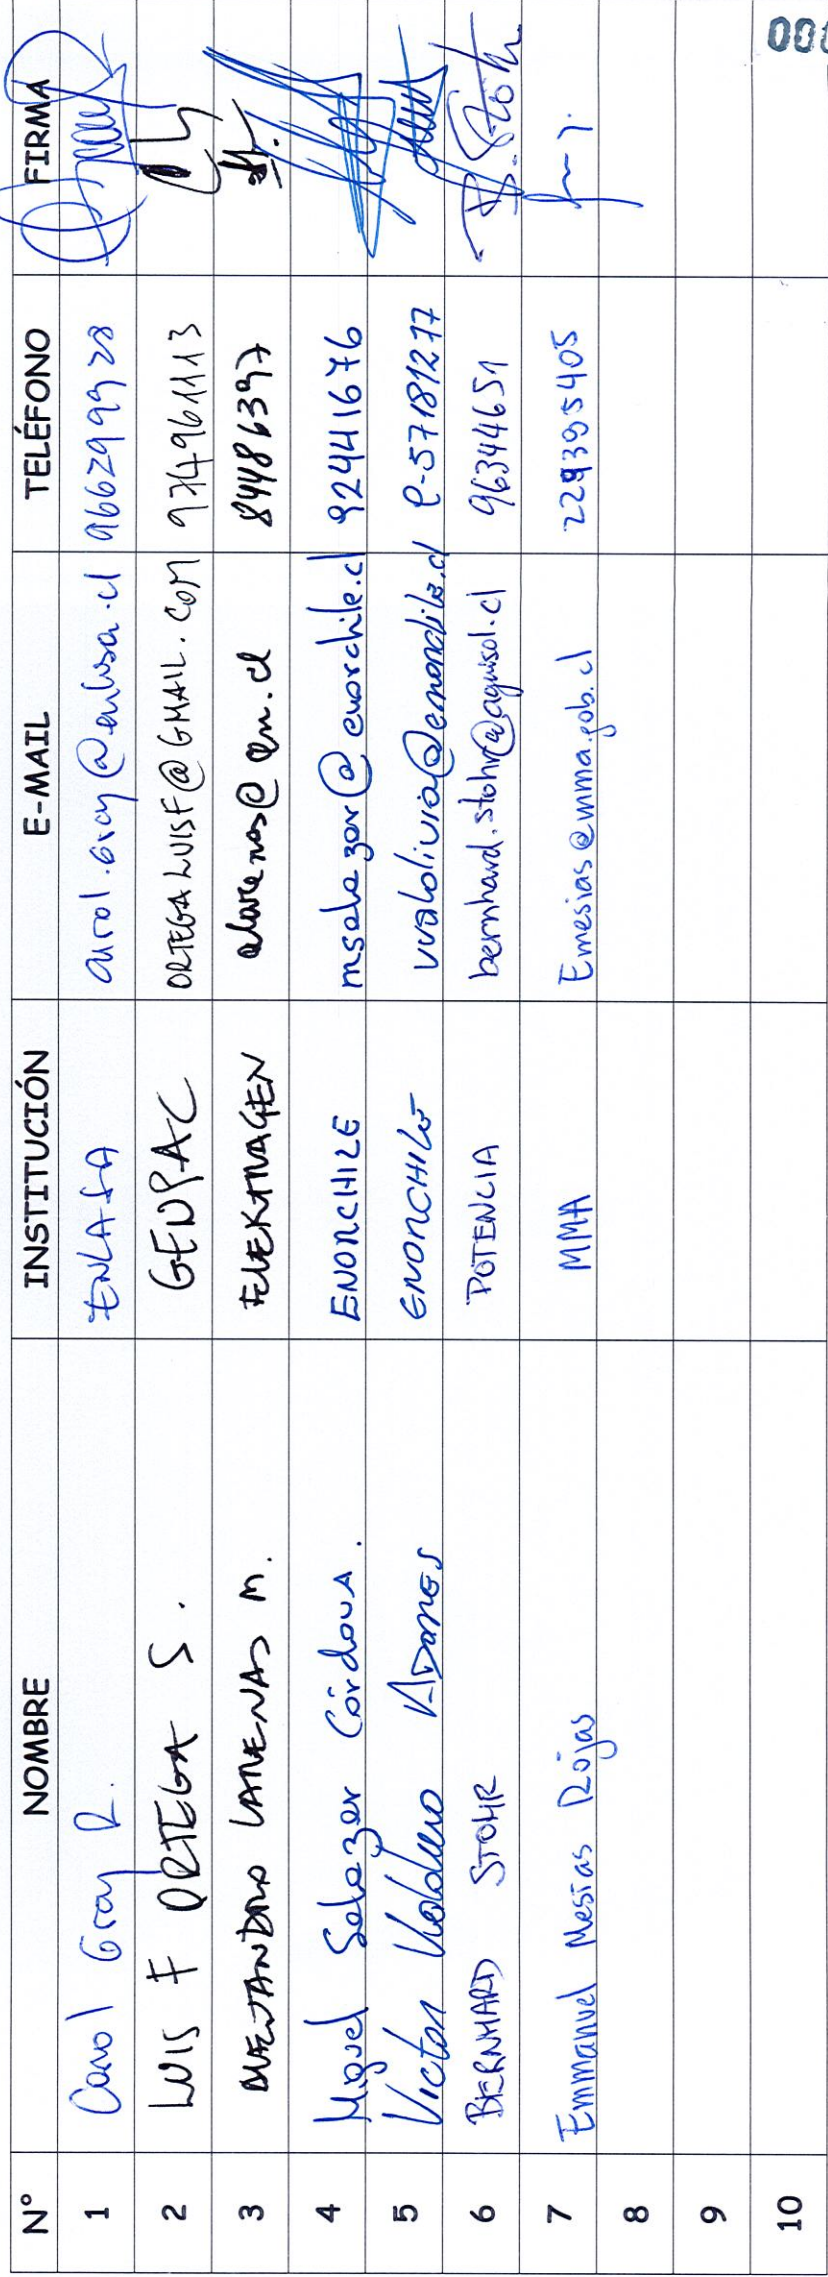 N° NOMBRE INSTITUCIÓN E-MAIL TELÉFONO FIRMA
1 Carol Gray R. ENLASA carol.gray@enlasa.cl 966299928
2 LUIS F ORTEGA S. GENPAC ORTEGALUISF@GMAIL.COM 974961113
3 ALEJANDRO LARENAS M. ELEKTRAGEN alarenas@em.cl 84486397
4 Miguel Salazar Córdova. ENORCHILE msalazar@enorchile.cl 92441676
5 Victor ADAMES ENORCHILE vvaldivia@enorchile.cl 57181277
6 BERNHARD STOHR POTENCIA bernhard.stohr@aquisol.cl 96344651 B. Stöhr
7 Emmanuel Mesías Rojas MMA Emesias@mma.gob.cl 229395405
8
9
10